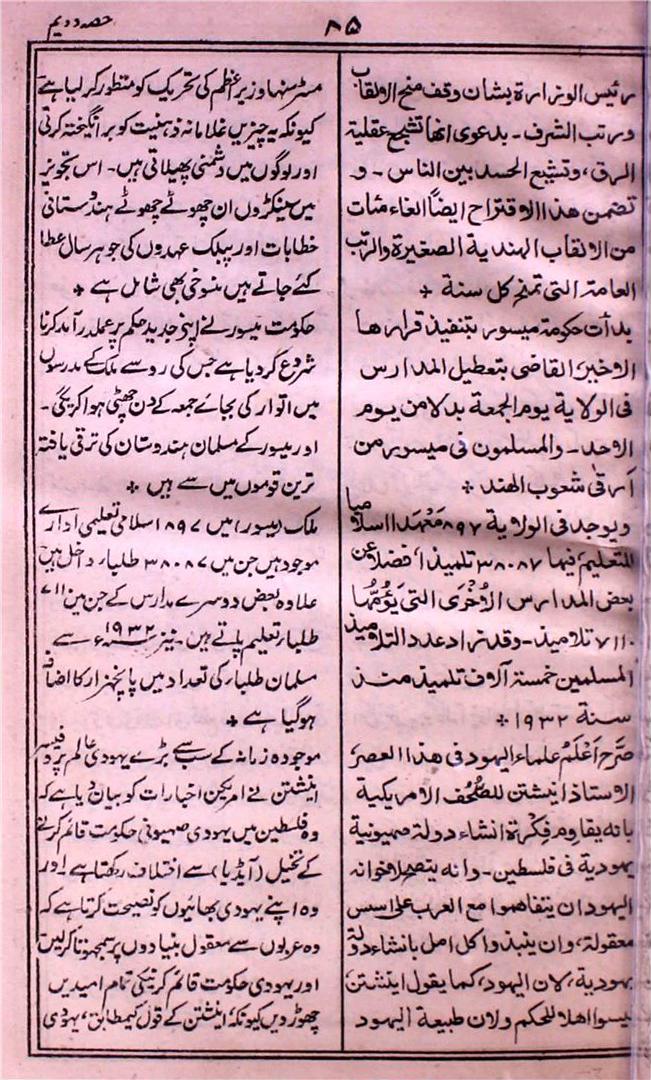 ۸۵
حصہ دویم
رئیس الوزارة بشان وقف منح الالقاب
ورتب الشرف ـ بدعوى انها تشجع عقلية
الرق، وتشيع الحسد بين الناس ـ و
تضمن هذا الاقتراح ايضاً الغاء مئات
من الالقاب الهندية الصغيرة والرتب
العامة التى تمنح كل سنة +
بدأت حكومة ميسور بتنفيذ قرارها
الاخير، القاضى بتعطيل المدارس
فى الولاية يوم الجمعة بدلا من يوم
الاحد ـ والمسلمون فى ميسور من
أرقى شعوب الهند +
ويوجد فى الولاية ۸۹۷ معهدا اسلاميا
للتعليم، فيها ۳۸۰۸۷ تلميذا، فضلا عن
بعض المدارس الأخرى التى يؤمها
۷۱۱۰ تلاميذ ـ وقد زاد عدد التلاميذ
المسلمين خمسة آلاف تلميذ منذ
سنة ۱۹۳۲ +
صرح أعلم علماء اليهود فى هذا العصر
الاستاذ اينشتن للصحف الامريكية
بانه يقاوم فكرة انشاء دولة صهيونية
يهودية فى فلسطين ـ وانه ينصح لاخوانه
اليهود ان يتفاهموا مع العرب على اسس
معقولة، وان ينبذوا كل امل بانشاء دولة
يهودية، لان اليهود، كما يقول اينشتن
ليسوا اهلا للحكم ولان طبيعة اليهود
مسٹر سنہا وزیر اعظم کی تحریک کو منظور کر لیا ہے
کیونکہ یہ چیزیں غلامانہ ذہنیت کو برانگیختہ کرتی
اور لوگوں میں دشمنی پھیلاتی ہیں۔ اس تجویز
میں سینکڑوں ان چھوٹے چھوٹے ہندوستانی
خطابات اور پبلک عہدوں کی جو ہر سال عطا
کئے جاتے ہیں منسوخی بھی شامل ہے +
حکومت میسور نے اپنی جدید حکم پر عملدرآمد کرنا
شروع کر دیا ہے جس کی رو سے ملک کے مدرسوں
میں اتوار کی بجائے جمعہ کے دن چھٹی ہوا کریگی۔
اور میسور کے مسلمان ہندوستان کی ترقی یافتہ
ترین قوموں میں سے ہیں +
ملک (میسور) میں ۸۹۷ اسلامی تعلیمی ادارے
موجود ہیں جن میں ۳۸۰۸۷ طلبار داخل ہیں
علاوہ بعض دوسرے مدارس کے جن میں ۷۱۱۰
طلبار تعلیم پاتے ہیں۔ نیز ۱۹۳۲ء سے
مسلمان طلبار کی تعداد میں پانچہزار کا اضافہ
ہو گیا ہے +
موجودہ زمانہ کے سب سے بڑے یہودی عالم پروفیسر
اینشتن نے امریکن اخبارات کو بیان دیا ہے کہ
وہ فلسطین میں یہودی صہیونی حکومت قائم کرنے
کے تخیل (آیڈیا) سے اختلاف رکھتا ہے اور
وہ اپنے یہودی بھائیوں کو نصیحت کرتا ہے کہ
وہ عربوں سے معقول بنیادوں پر سمجھوتا کرلیں
اور یہودی حکومت قائم کرنیکی تمام امیدیں
چھوڑ دیں کیونکہ، اینشتن کے قول کیمطابق، یہودی